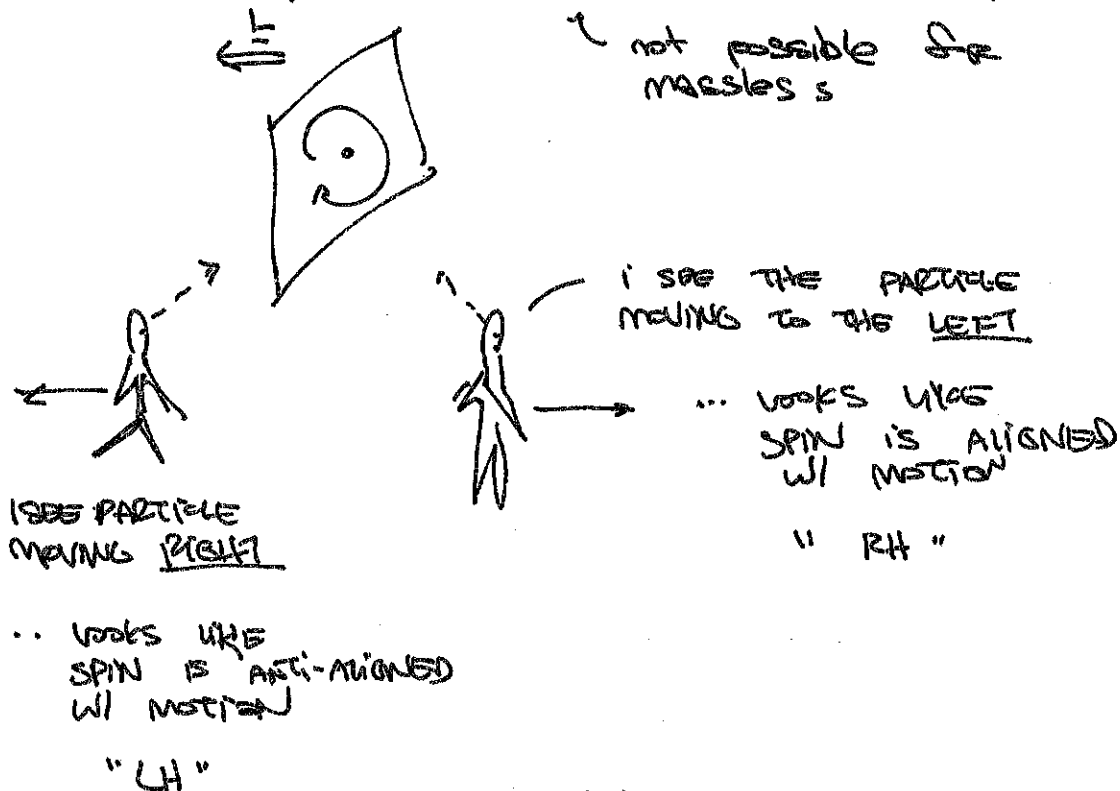 L
not possible for
massless
I SEE THE PARTICLE
MOVING TO THE LEFT
... LOOKS LIKE
SPIN IS ALIGNED
W/ MOTION
" RH "
I SEE PARTICLE
MOVING RIGHT
.. LOOKS LIKE
SPIN IS ANTI-ALIGNED
W/ MOTION
" LH "